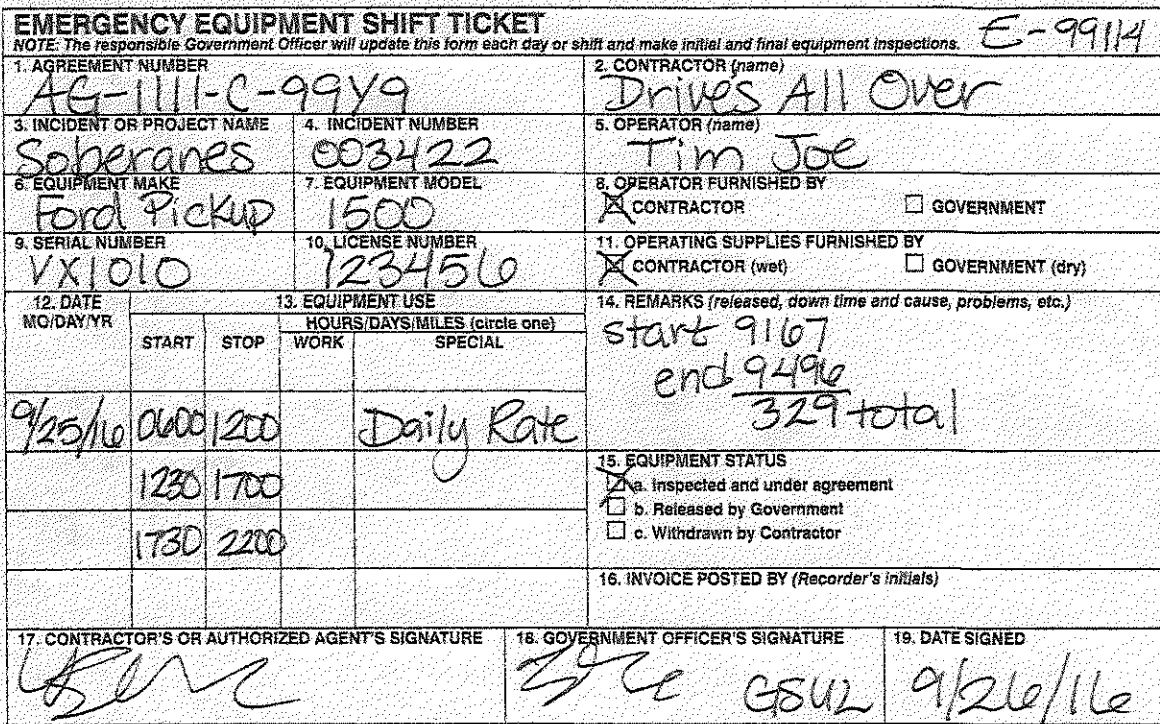 EMERGENCY EQUIPMENT SHIFT TICKET
E-99114
NOTE: The responsible Government Officer will update this form each day or shift and make initial and final equipment inspections.
1. AGREEMENT NUMBER
AG-1111-C-99Y9
2. CONTRACTOR (name)
Drives All Over
3. INCIDENT OR PROJECT NAME
Soberanes
4. INCIDENT NUMBER
003422
5. OPERATOR (name)
Tim Joe
6. EQUIPMENT MAKE
Ford Pickup
7. EQUIPMENT MODEL
1500
8. OPERATOR FURNISHED BY
CONTRACTOR
GOVERNMENT
9. SERIAL NUMBER
VX1010
10. LICENSE NUMBER
123456
11. OPERATING SUPPLIES FURNISHED BY
CONTRACTOR (wet)
GOVERNMENT (dry)
12. DATE
MO/DAY/YR
13. EQUIPMENT USE
HOURS/DAYS/MILES (circle one)
START STOP WORK SPECIAL
9/25/16 0600 1200 Daily Rate
1230 1700
1730 2200
14. REMARKS (released, down time and cause, problems, etc.)
start 9167
end 9496
329 total
15. EQUIPMENT STATUS
a. Inspected and under agreement
b. Released by Government
c. Withdrawn by Contractor
16. INVOICE POSTED BY (Recorder's initials)
17. CONTRACTOR'S OR AUTHORIZED AGENT'S SIGNATURE
18. GOVERNMENT OFFICER'S SIGNATURE
GSUL
19. DATE SIGNED
9/26/16